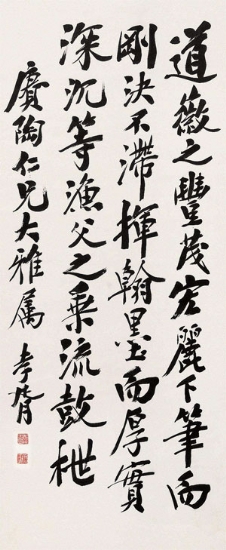 道薇之豐茂宏麗下筆而
剛決不滯揮翰墨而厚實
深沉等漁父之乘流鼓枻
賡陶仁兄大雅屬 孝胥